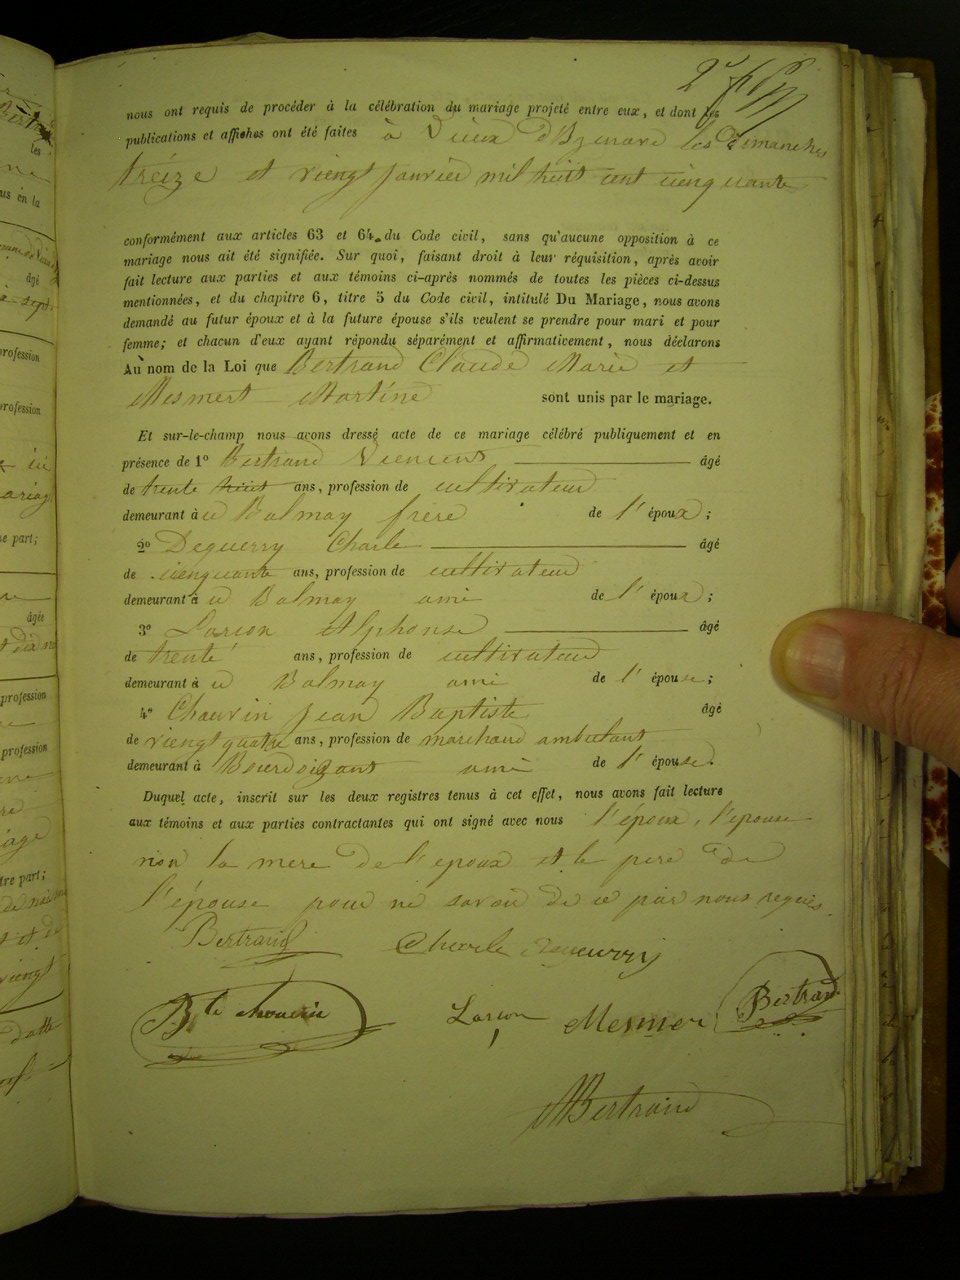 nous ont requis de procéder à la célébration du mariage projeté entre eux, et dont les
publications et affiches ont été faites à Vieux d'Izenave les Dimanches
treize et viengt janvier mil huit cent cienquante
conformément aux articles 63 et 64 du Code civil, sans qu'aucune opposition à ce
mariage nous ait été signifiée. Sur quoi, faisant droit à leur réquisition, après avoir
fait lecture aux parties et aux témoins ci-après nommés de toutes les pièces ci-dessus
mentionnées, et du chapitre 6, titre 5 du Code civil, intitulé Du Mariage, nous avons
demandé au futur époux et à la future épouse s'ils veulent se prendre pour mari et pour
femme; et chacun d'eux ayant répondu séparément et affirmativement, nous déclarons
Au nom de la Loi que Bertrand Claude Marie et
Mesmert Martine sont unis par le mariage.
Et sur-le-champ nous avons dressé acte de ce mariage célébré publiquement et en
présence de 1° Bertrand âgé
de trente huit ans, profession de cultivateur
demeurant à Balmay frere de l'époux;
2° Deguerry Charle âgé
de cienquante ans, profession de cultivateur
demeurant à Balmay ami de l'époux;
3° Larcon Alphonse âgé
de trente ans, profession de cultivateur
demeurant à Balmay ami de l'épouse;
4° Chauvin Jean Baptiste âgé
de viengt quatre ans, profession de marchand ambulant
demeurant à ami de l'épouse.
Duquel acte, inscrit sur les deux registres tenus à cet effet, nous avons fait lecture
aux témoins et aux parties contractantes qui ont signé avec nous l'époux, l'épouse
non la mere de l'epoux et le pere de
l'épouse pour ne savoir de ce par nous requis.
Bertrand Charle
Bte Larcon Mesmer Bertrand
Bertrand